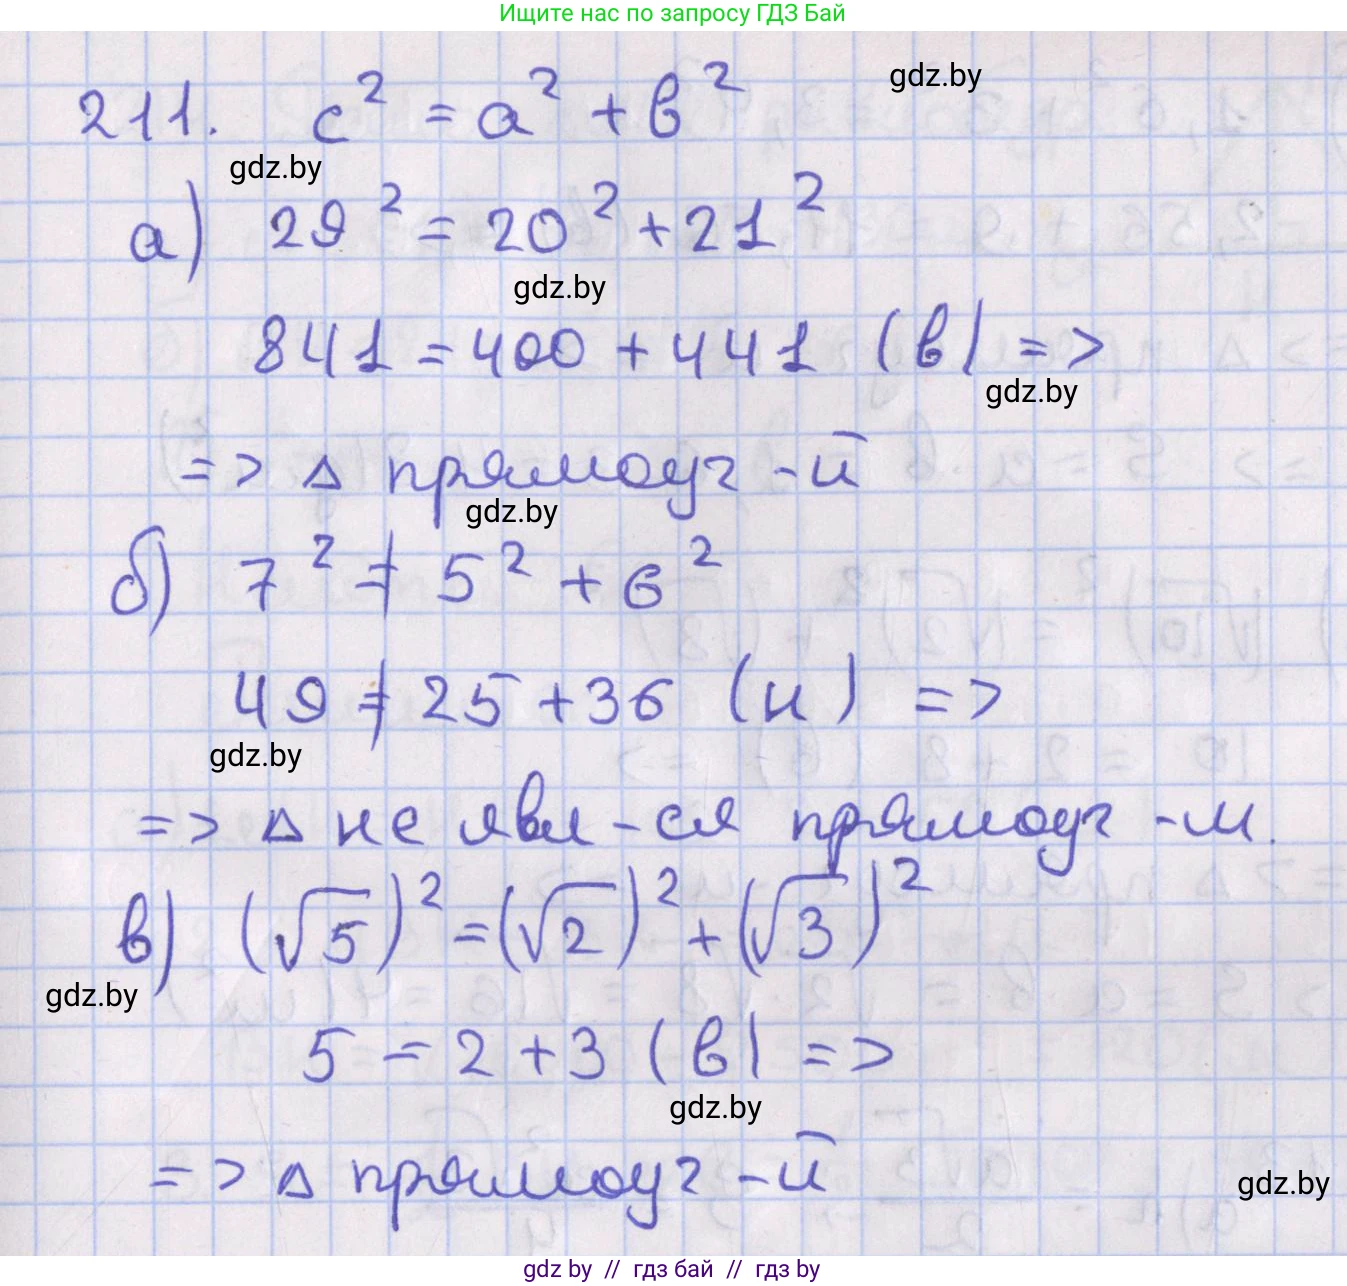 Ищите нас по запросу ГДЗ Бай
gdz.by
211. c² = a² + в²
gdz.by
а) 29² = 20² + 21²
gdz.by
841 = 400 + 441 (в) =>
gdz.by
=> Δ прямоуг-й
gdz.by
б) 7² ≠ 5² + 6²
49 ≠ 25 + 36 (н) =>
gdz.by
=> Δ не явл-ся прямоуг-м.
в) (√5)² = (√2)² + (√3)²
gdz.by
5 = 2 + 3 (в) =>
gdz.by
=> Δ прямоуг-й
gdz.by
gdz by // гдз бай // гдз by